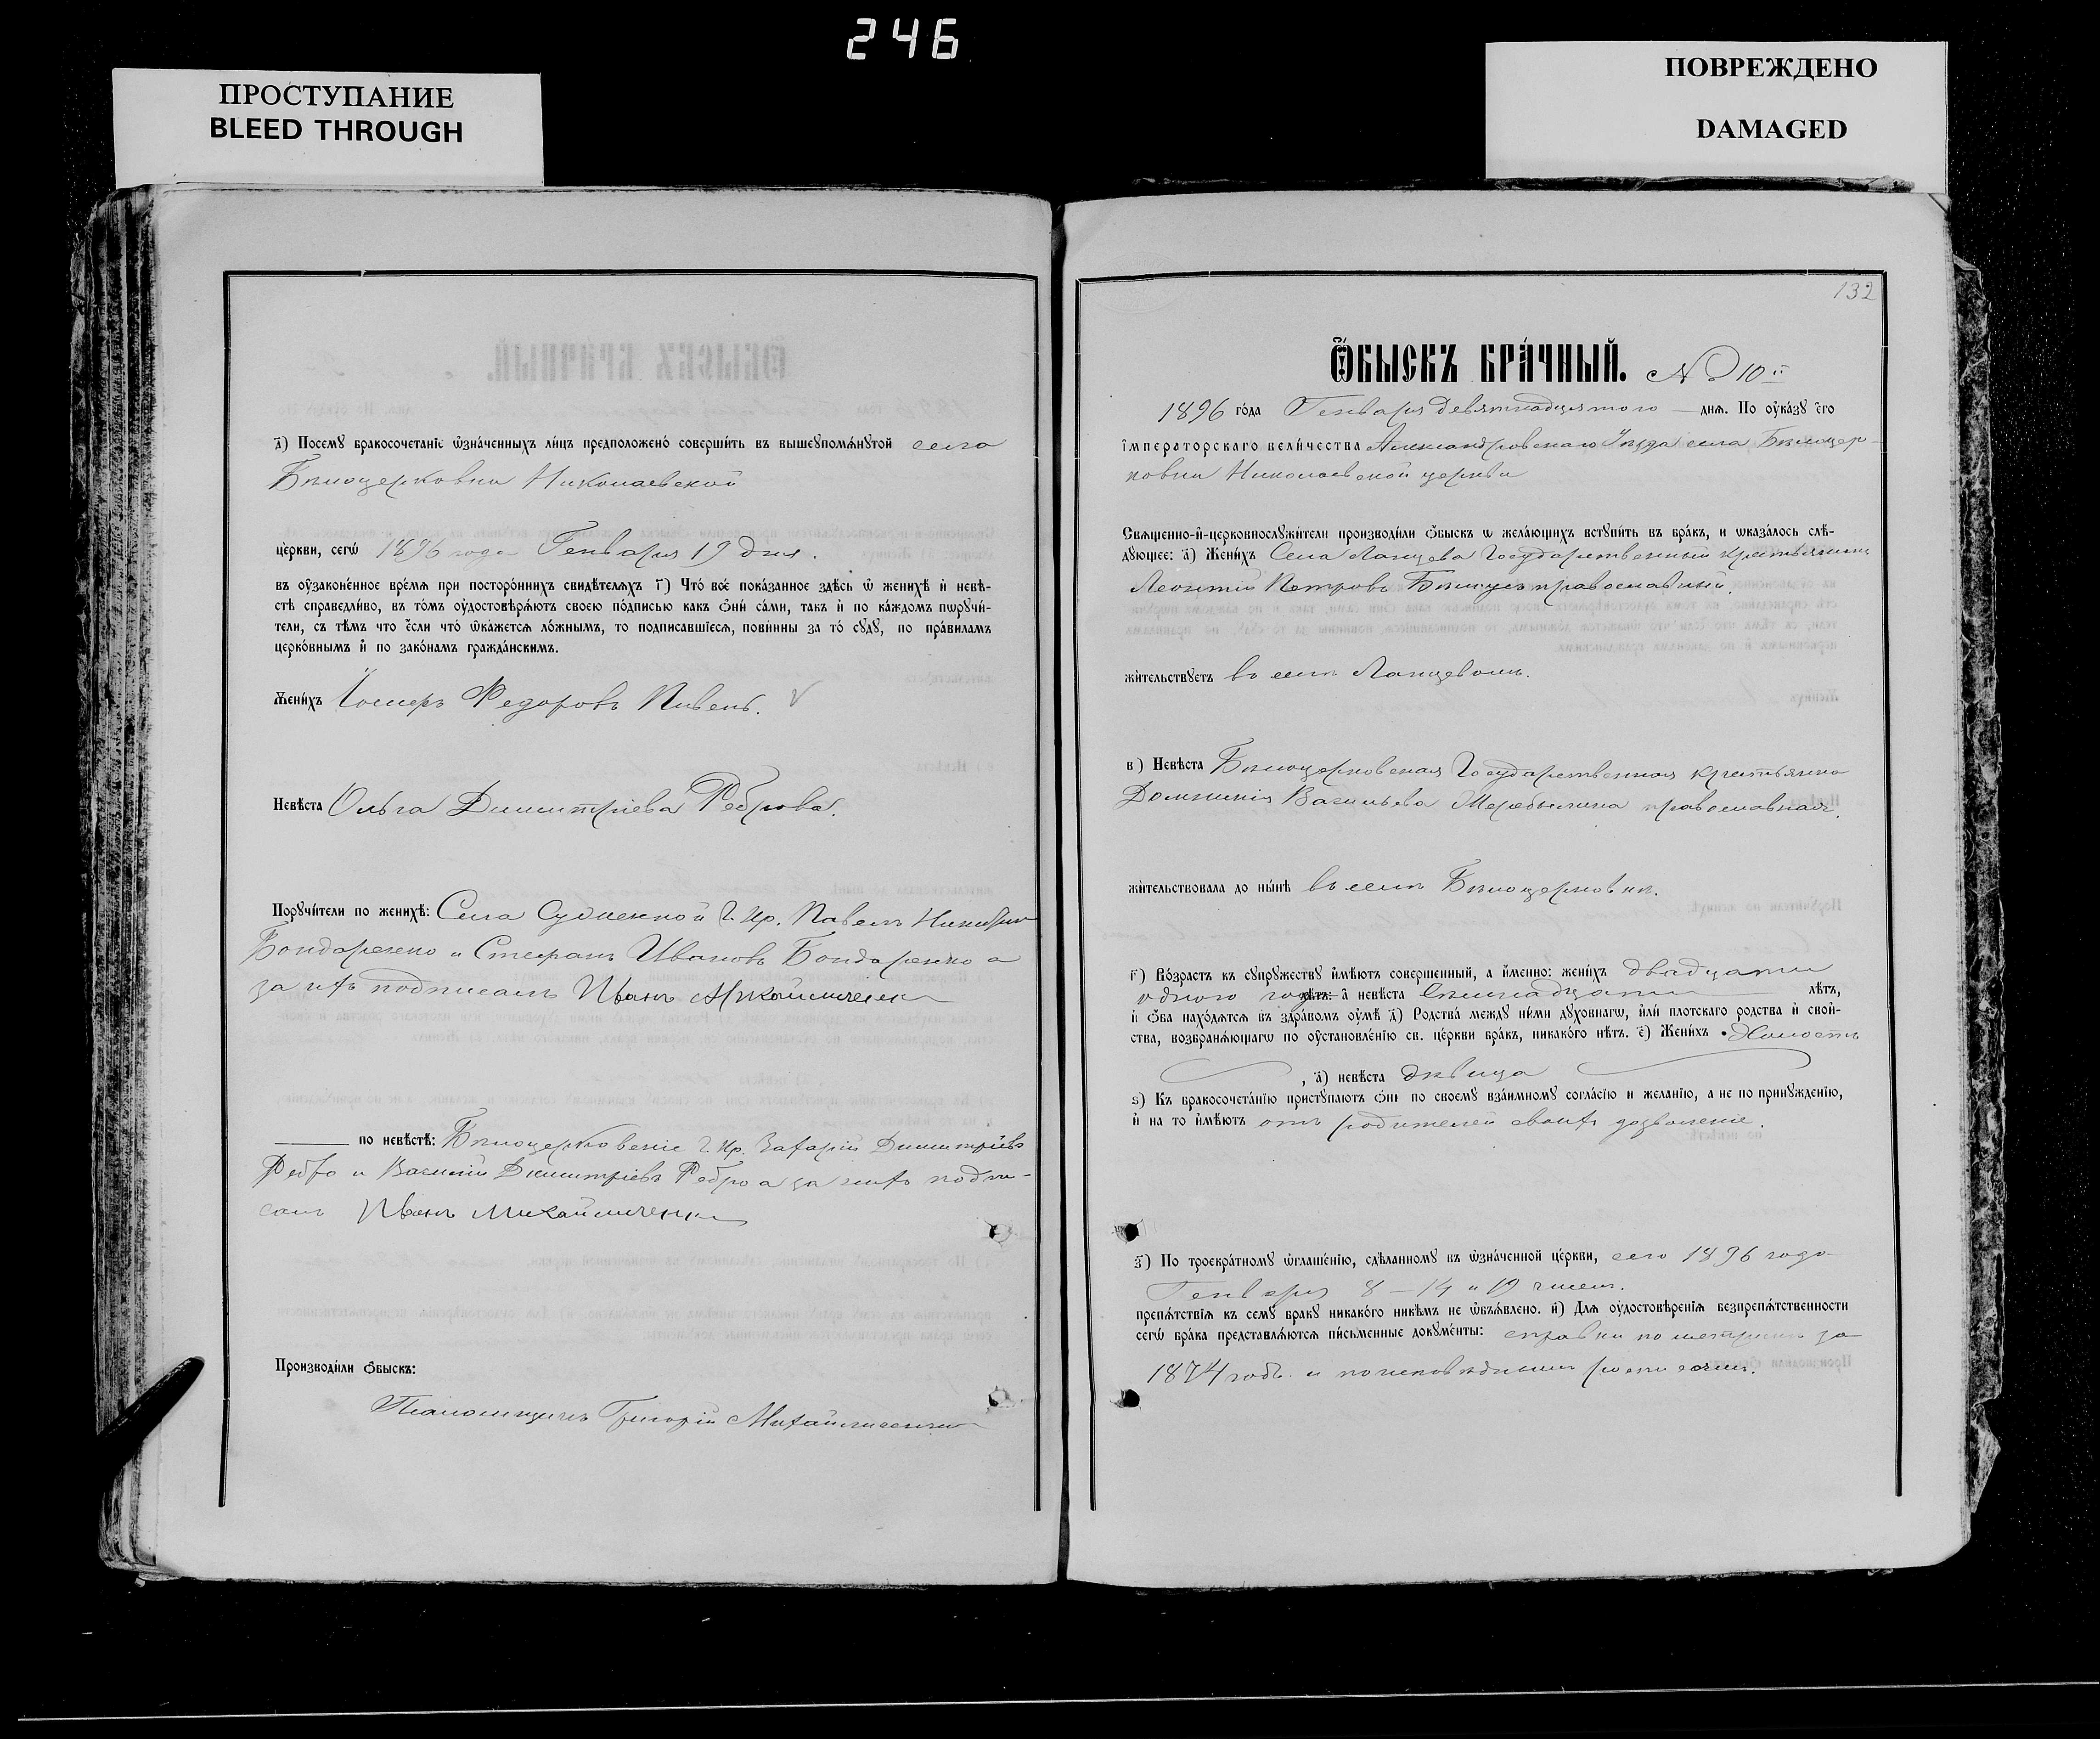 246
ПРОСТУПАНИЕ
BLEED THROUGH
ПОВРЕЖДЕНО
DAMAGED
д) Посему бракосочетаніе ѡзначенныхъ лицъ предположено совершить въ вышеупомянутой села
Бѣлоцерковки Николаевской
церкви, сегѡ 1896 года Генваря 19 дня.
въ оузаконенное время при постороннихъ свидѣтеляхъ г) Что все показанное здѣсь ѡ женихѣ и невѣ-
стѣ справедливо, въ томъ оудостовѣряютъ своею подписью какъ ѻни сами, такъ и по каждомъ пѡручи-
тели, съ тѣмъ что если что ѡкажется ложнымъ, то подписавшіеся, повинны за то суду, по правиламъ
церковнымъ и по законамъ гражданскимъ.
Женихъ Федоровъ Пивень.
Невѣста Ольга Димитріева Реброва.
Поручители по женихѣ: Села Г. Кр. Павелъ
Бондаренко и Стефанъ Ивановъ Бондаренко а
за ихъ подписалъ Иванъ Михайличенко
по невѣстѣ: Бѣлоцерковскіе Г. Кр. Захарій Димитріевъ
Ребро и Василій Димитріевъ Ребро а за нихъ подпи-
салъ Иванъ Михайличенко
Производили ѻбыскъ:
Псаломщикъ Григорій Михайличенко
132
Ѻбыскъ брачный. № 10й
1896 года Генваря девятнадцятого дня. По оуказу его
императорскаго величества Александровскаго Уѣзда села Бѣлоцер-
ковки Николаевской церкви
Священно-и-церковнослужители производили ѻбыскъ ѡ желающихъ вступить въ бракъ, и ѡказалось слѣ-
дующее: а) Женихъ Села Ланцева Государственный крестьянинъ
Леонтій Петровъ православный.
жительствуетъ въ селѣ Ланцевомъ.
в) Невѣста Бѣлоцерковская Государственная крестьянка
Домникія Васильева православная.
жительствовала до нынѣ въ селѣ Бѣлоцерковкѣ.
г) Возрастъ къ супружеству имѣютъ совершенный, а именно: женихъ двадцати
одного года лѣтъ: а невѣста лѣтъ,
и ѻба находятся въ здравомъ оумѣ д) Родства между ними духовнагѡ, или плотскаго родства и свой-
ства, возбраняющагѡ по оустановленію св. церкви бракъ, никакого нѣтъ. е) Женихъ Холостъ
, а) невѣста дѣвица
ѕ) Къ бракосочетанію приступаютъ ѻни по своему взаимному согласію и желанію, а не по принужденію,
и на то имѣютъ отъ родителей своихъ дозволеніе.
з) По троекратному ѡглашенію, сдѣланному въ ѡзначенной церкви, сего 1896 года
Генваря 8 – 14 и 19 чиселъ.
препятствія къ сему браку никакого никѣмъ не ѡбъявлено. и) Для оудостовѣренія безпрепятственности
сегѡ брака представляются письменные документы: справки по метрикѣ за
1874 годъ и по исповѣднымъ росписямъ.